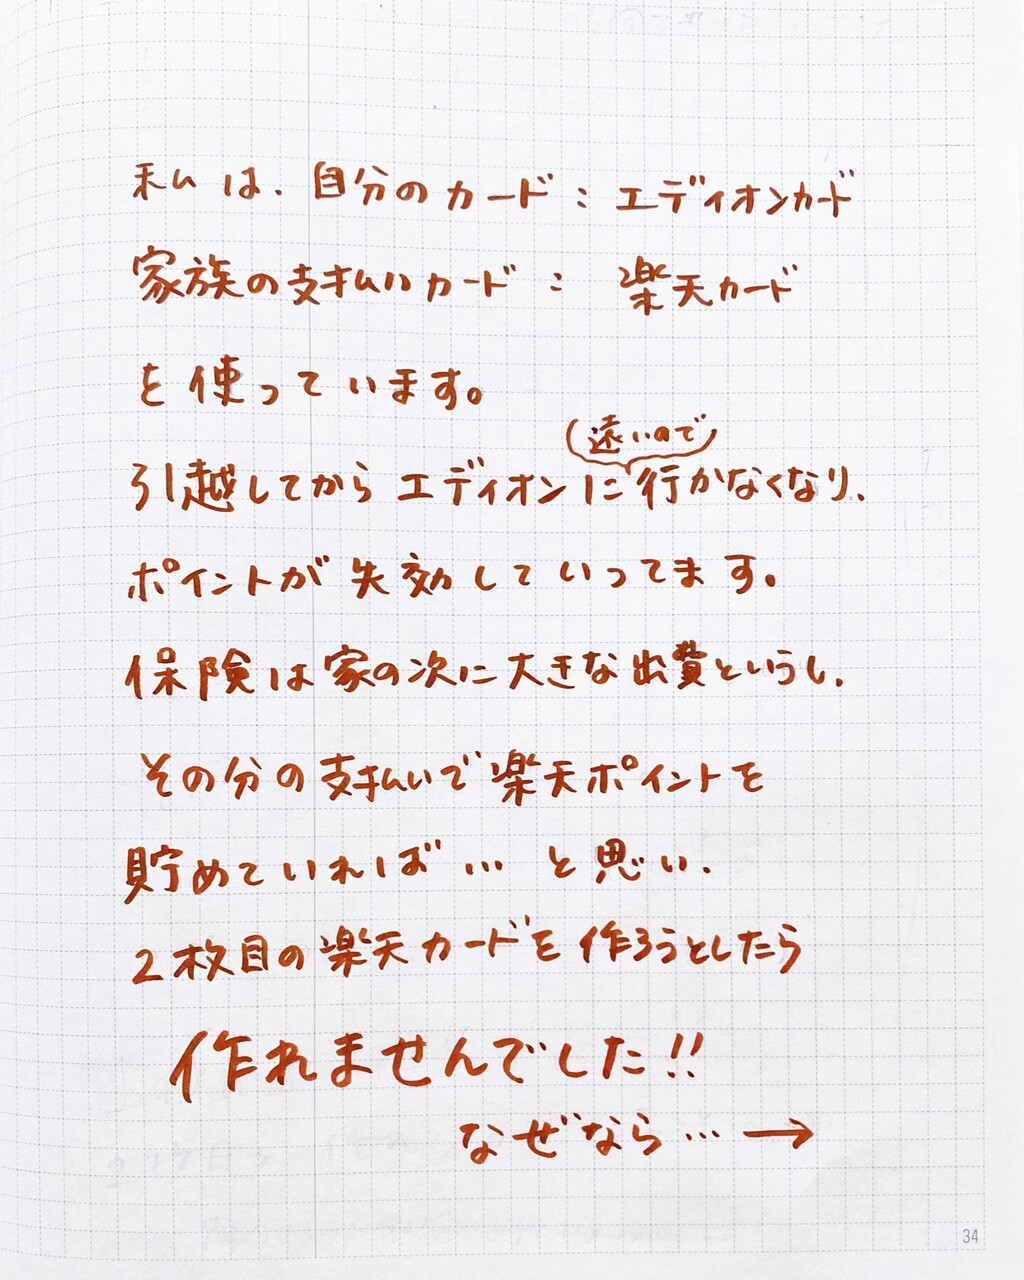 私は、自分のカード：エディオンカード
家族の支払いカード：楽天カード
を使っています。
(遠いので)
引越してからエディオンに行かなくなり、
ポイントが失効していってます。
保険は家の次に大きな出費というし、
その分の支払いで楽天ポイントを
貯めていれば…と思い、
2枚目の楽天カードを作ろうとしたら
作れませんでした!!
なぜなら…→
34